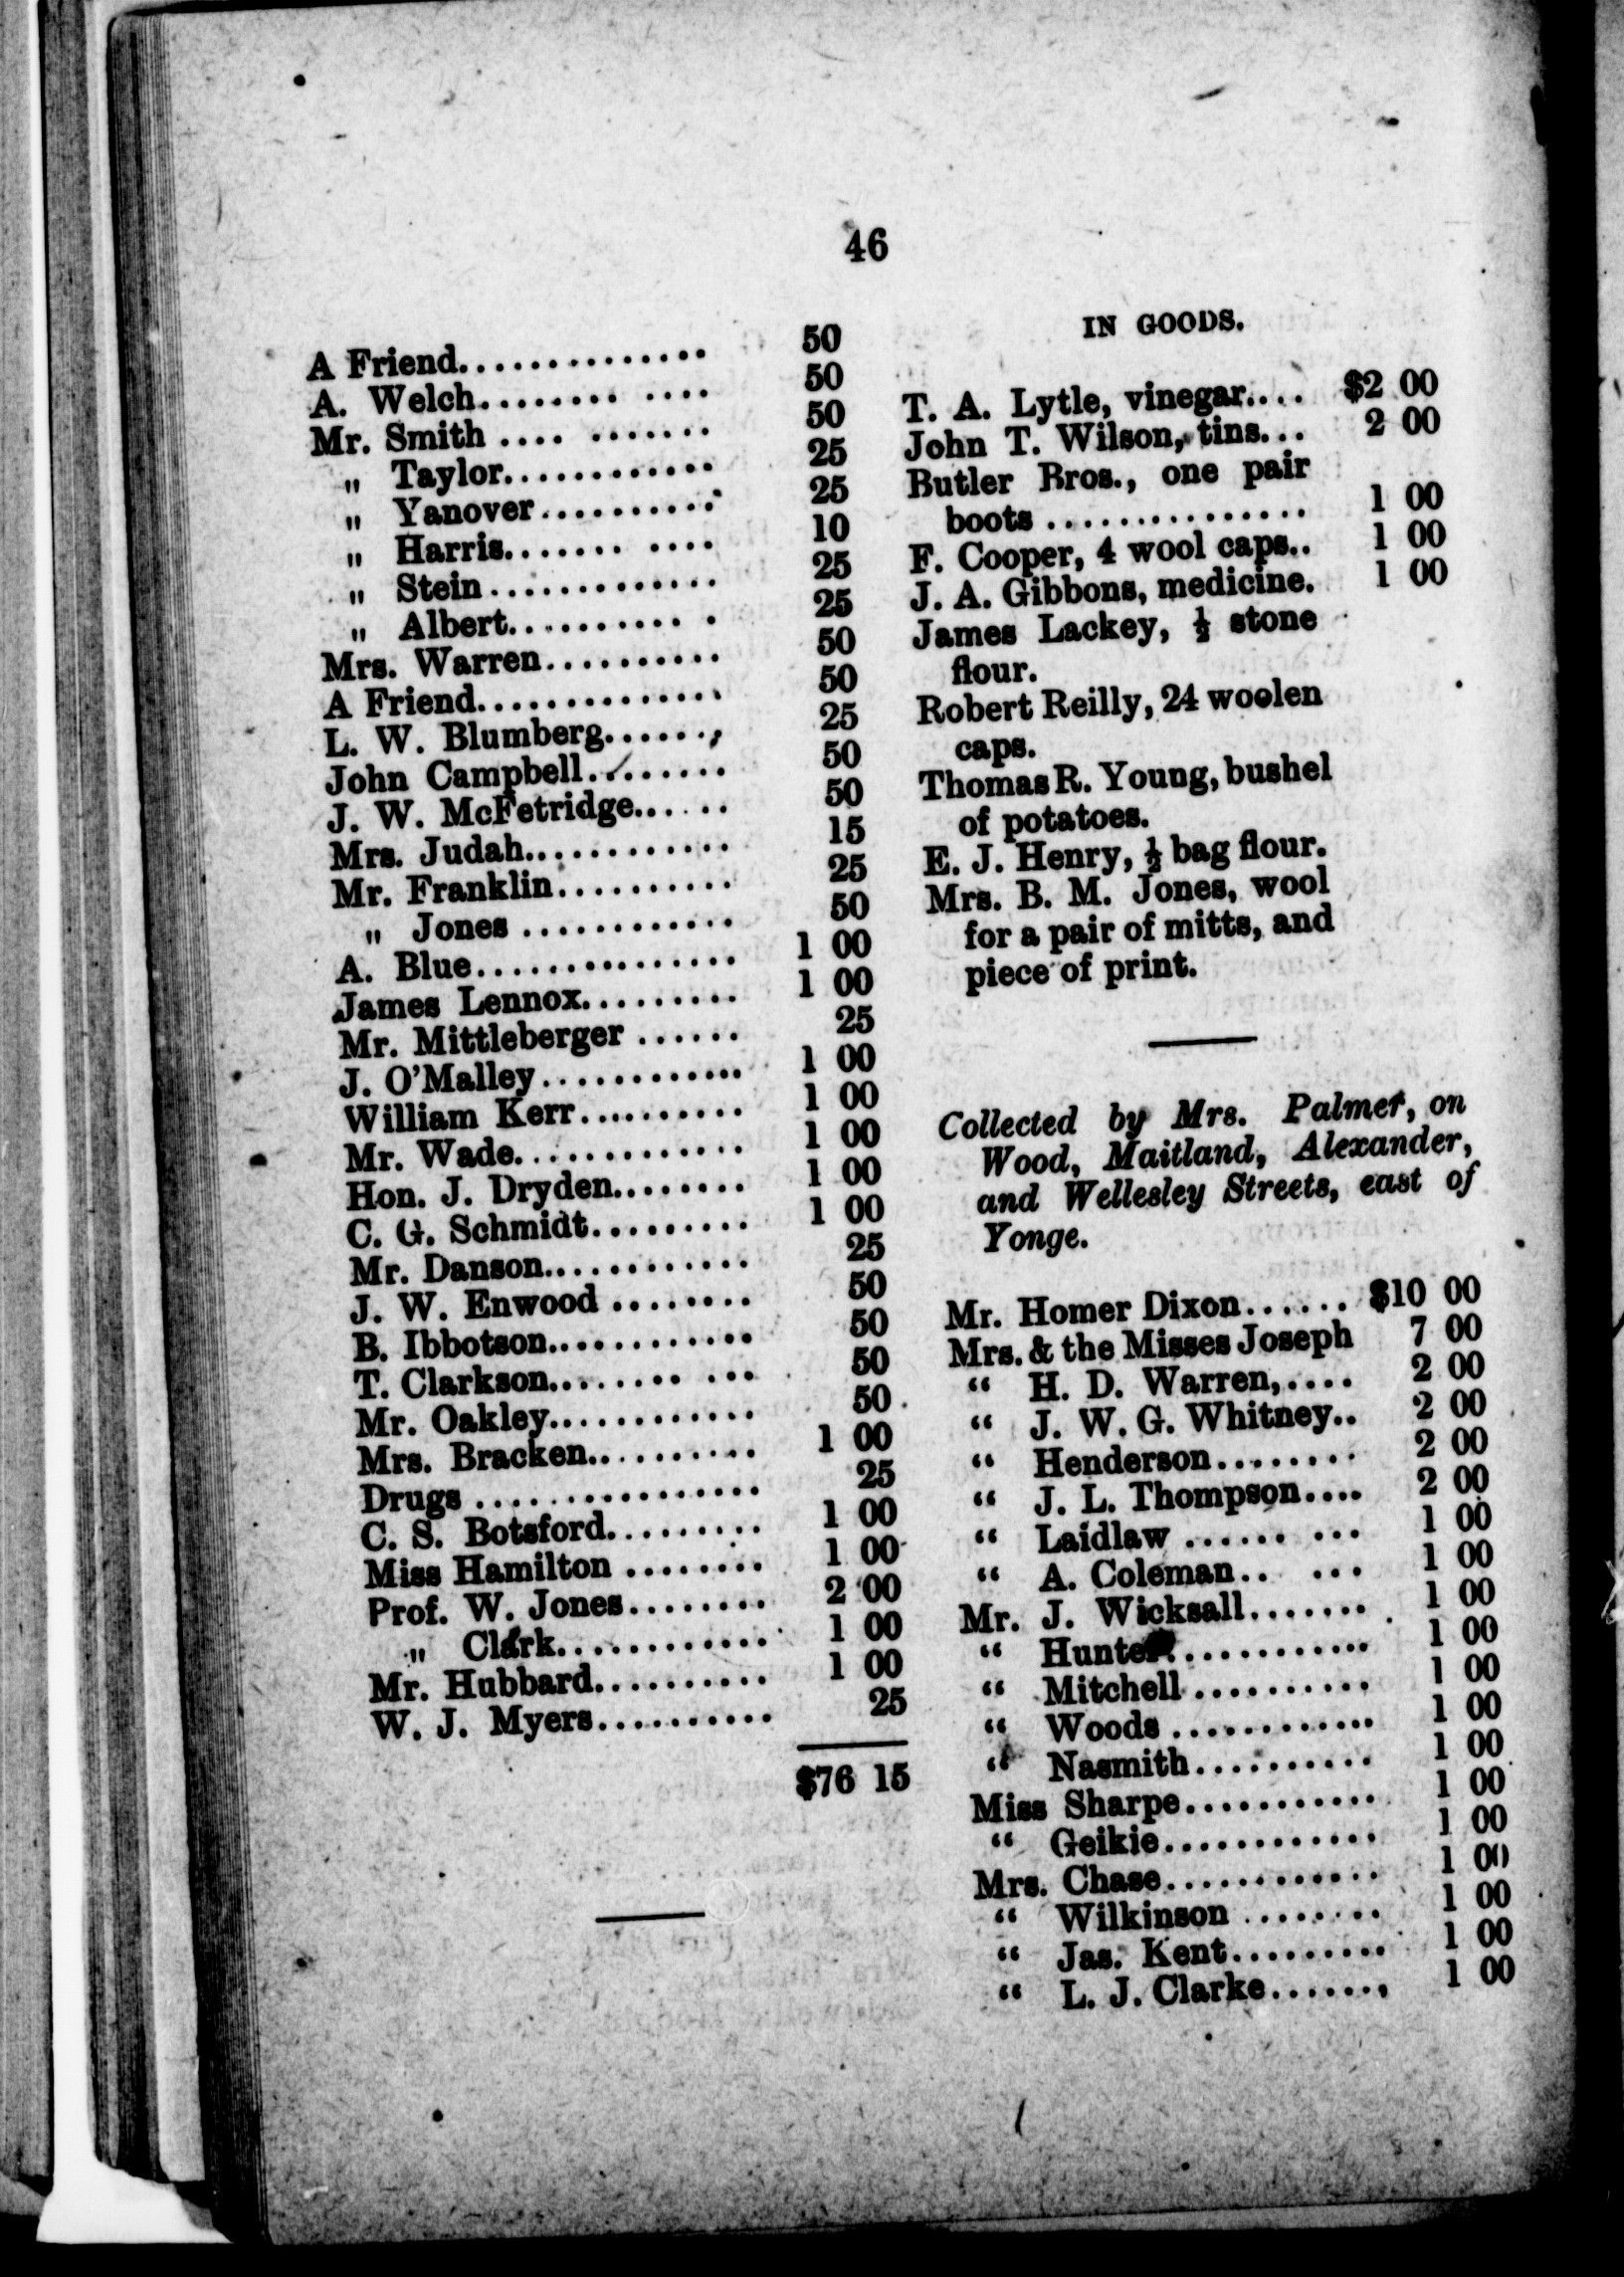 46
A Friend.............. 50
A. Welch........ .... 50
Mr. Smith .... ....... 50
„ Taylor............ 25
„ Yanover.......... 25
„ Harris....... .... 10
„ Stein............. 25
„ Albert.......... . 25
Mrs. Warren.......... 50
A Friend.............. 50
L. W. Blumberg....... 25
John Campbell........ 50
J. W. McFetridge...... 50
Mrs. Judah............ 15
Mr. Franklin.......... 25
„ Jones ............ 50
A. Blue............... 1 00
James Lennox......... 1 00
Mr. Mittleberger ...... 25
J. O'Malley............ 1 00
William Kerr.......... 1 00
Mr. Wade............. 1 00
Hon. J. Dryden........ 1 00
C. G. Schmidt......... 1 00
Mr. Danson............ 25
J. W. Enwood ........ 50
B. Ibbotson............ 50
T. Clarkson........ ... 50
Mr. Oakley............ 50
Mrs. Bracken.......... 1 00
Drugs ................. 25
C. S. Botsford......... 1 00
Miss Hamilton ........ 1 00
Prof. W. Jones........ 2 00
„ Clark............ 1 00
Mr. Hubbard.......... 1 00
W. J. Myers.......... 25
$76 15
IN GOODS.
T. A. Lytle, vinegar.... $2 00
John T. Wilson, tins... 2 00
Butler Bros., one pair
boots ............... 1 00
F. Cooper, 4 wool caps.. 1 00
J. A. Gibbons, medicine. 1 00
James Lackey, ½ stone
flour.
Robert Reilly, 24 woolen
caps.
Thomas R. Young, bushel
of potatoes.
E. J. Henry, ½ bag flour.
Mrs. B. M. Jones, wool
for a pair of mitts, and
piece of print.
Collected by Mrs. Palmer, on
Wood, Maitland, Alexander,
and Wellesley Streets, east of
Yonge.
Mr. Homer Dixon...... $10 00
Mrs. & the Misses Joseph 7 00
“ H. D. Warren,.... 2 00
“ J. W. G. Whitney.. 2 00
“ Henderson........ 2 00
“ J. L. Thompson.... 2 00
“ Laidlaw ...... ... 1 00
“ A. Coleman.. ... 1 00
Mr. J. Wicksall....... 1 00
“ Hunter............ 1 00
“ Mitchell .......... 1 00
“ Woods ............ 1 00
“ Nasmith.......... 1 00
Miss Sharpe........... 1 00
“ Geikie............ 1 00
Mrs. Chase............ 1 00
“ Wilkinson ........ 1 00
“ Jas. Kent......... 1 00
“ L. J. Clarke....... 1 00